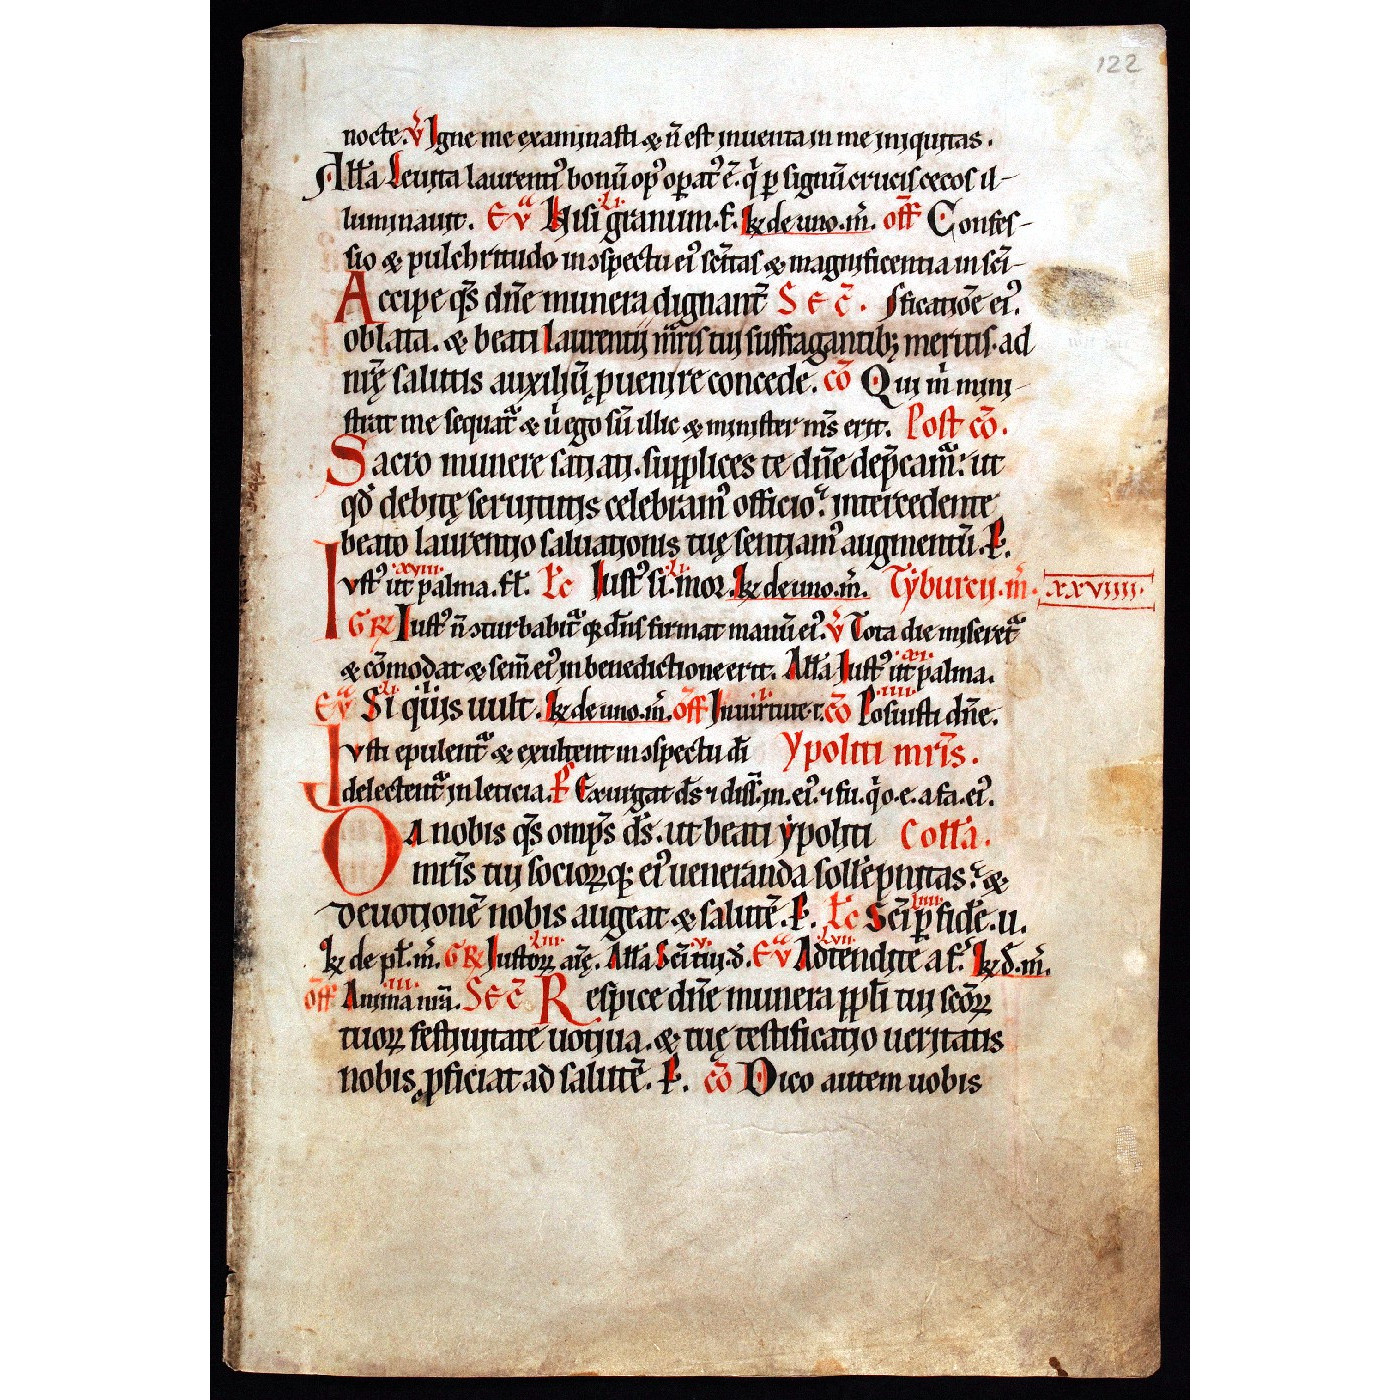 122
nocte. V̄ Igne me examinasti & n̄ est inuenta in me iniquitas.
All̄a Leuita laurentiꝰ bonū opꝰ opatꝰ ē. q̇ p signū crucis cecos il-
luminauit. Ev̄ Nisi granum. f. k̄ de uno. m̄. off̄ Confes-
sio & pulchritudo in ɔspectu eiꝰ sc̄itas & magnificentia in sc̄i-
Accipe q̄s dn̄e munera dignant̄ SEC̄. sficatiōe eiꝰ.
oblata. & beati laurentii m̄ris tui suffragantibꝫ meritis. ad
nr̄ę salutis auxiliū ꝓuenire concede. cō Qui m̄ mini-
strat me sequat̄ & ů ego sū illic & minister mṡ erit. Post cō.
Sacro munere satiati. supplices te dn̄e dep̄cam̄. ut
qđ debitę seruitutis celebramꝰ officio. intercedente
beato laurentio saluationis tuę sentiamꝰ augmentū. P.
Iustꝰ ut palma. fl̄. Lc̄ Iustꝰ si. mor. k̄ de uno. m̄. Tyburcii. m̄. xxviiii.
xviii li
GR Iustꝰ n̄ ɔturbabit̄ q̄ dn̄s firmat manū eiꝰ. V̄ Tota die miseret̄
& cōmodat & sem̄ eiꝰ in benedictione erit. All̄a Iustꝰ ut palma.
xi
Ev̄ Si quis uult. k̄ de uno. m̄. off̄ In uirtute t. cō Posuisti dn̄e.
li li iiii
Iusti epulent̄ & exultent in ɔspectu dī Ypoliti mr̄is.
delectent̄ in leticia. P̄ Exurgat d̄s ⁊ dissi. in. eiꝰ. ⁊ fu. q̇ o. e. a fa. eiꝰ.
Da nobis q̄s omp̄s d̄s. ut beati ypoliti Coll̄a.
mr̄is tui socioꝝq; eiꝰ ueneranda soll̄ēpnitas. &
deuotionē nobis augeat & salutē. P. Lc̄ Sc̄i p fidē. u.
k̄ de pl̄. m̄. GR Iustoꝝ aīę. All̄a Sc̄i tui. d̄. Ev̄ Adtendite a f. k̄ d̄. m̄.
off̄ Anima nr̄a. SEC̄ Respice dn̄e munera ppl̄i tui sc̄oꝝ
tuoꝝ festiuitate uotiua. & tuę testificatio ueritatis
nobis ꝓficiat ad salutē. P. cō Dico autem uobis